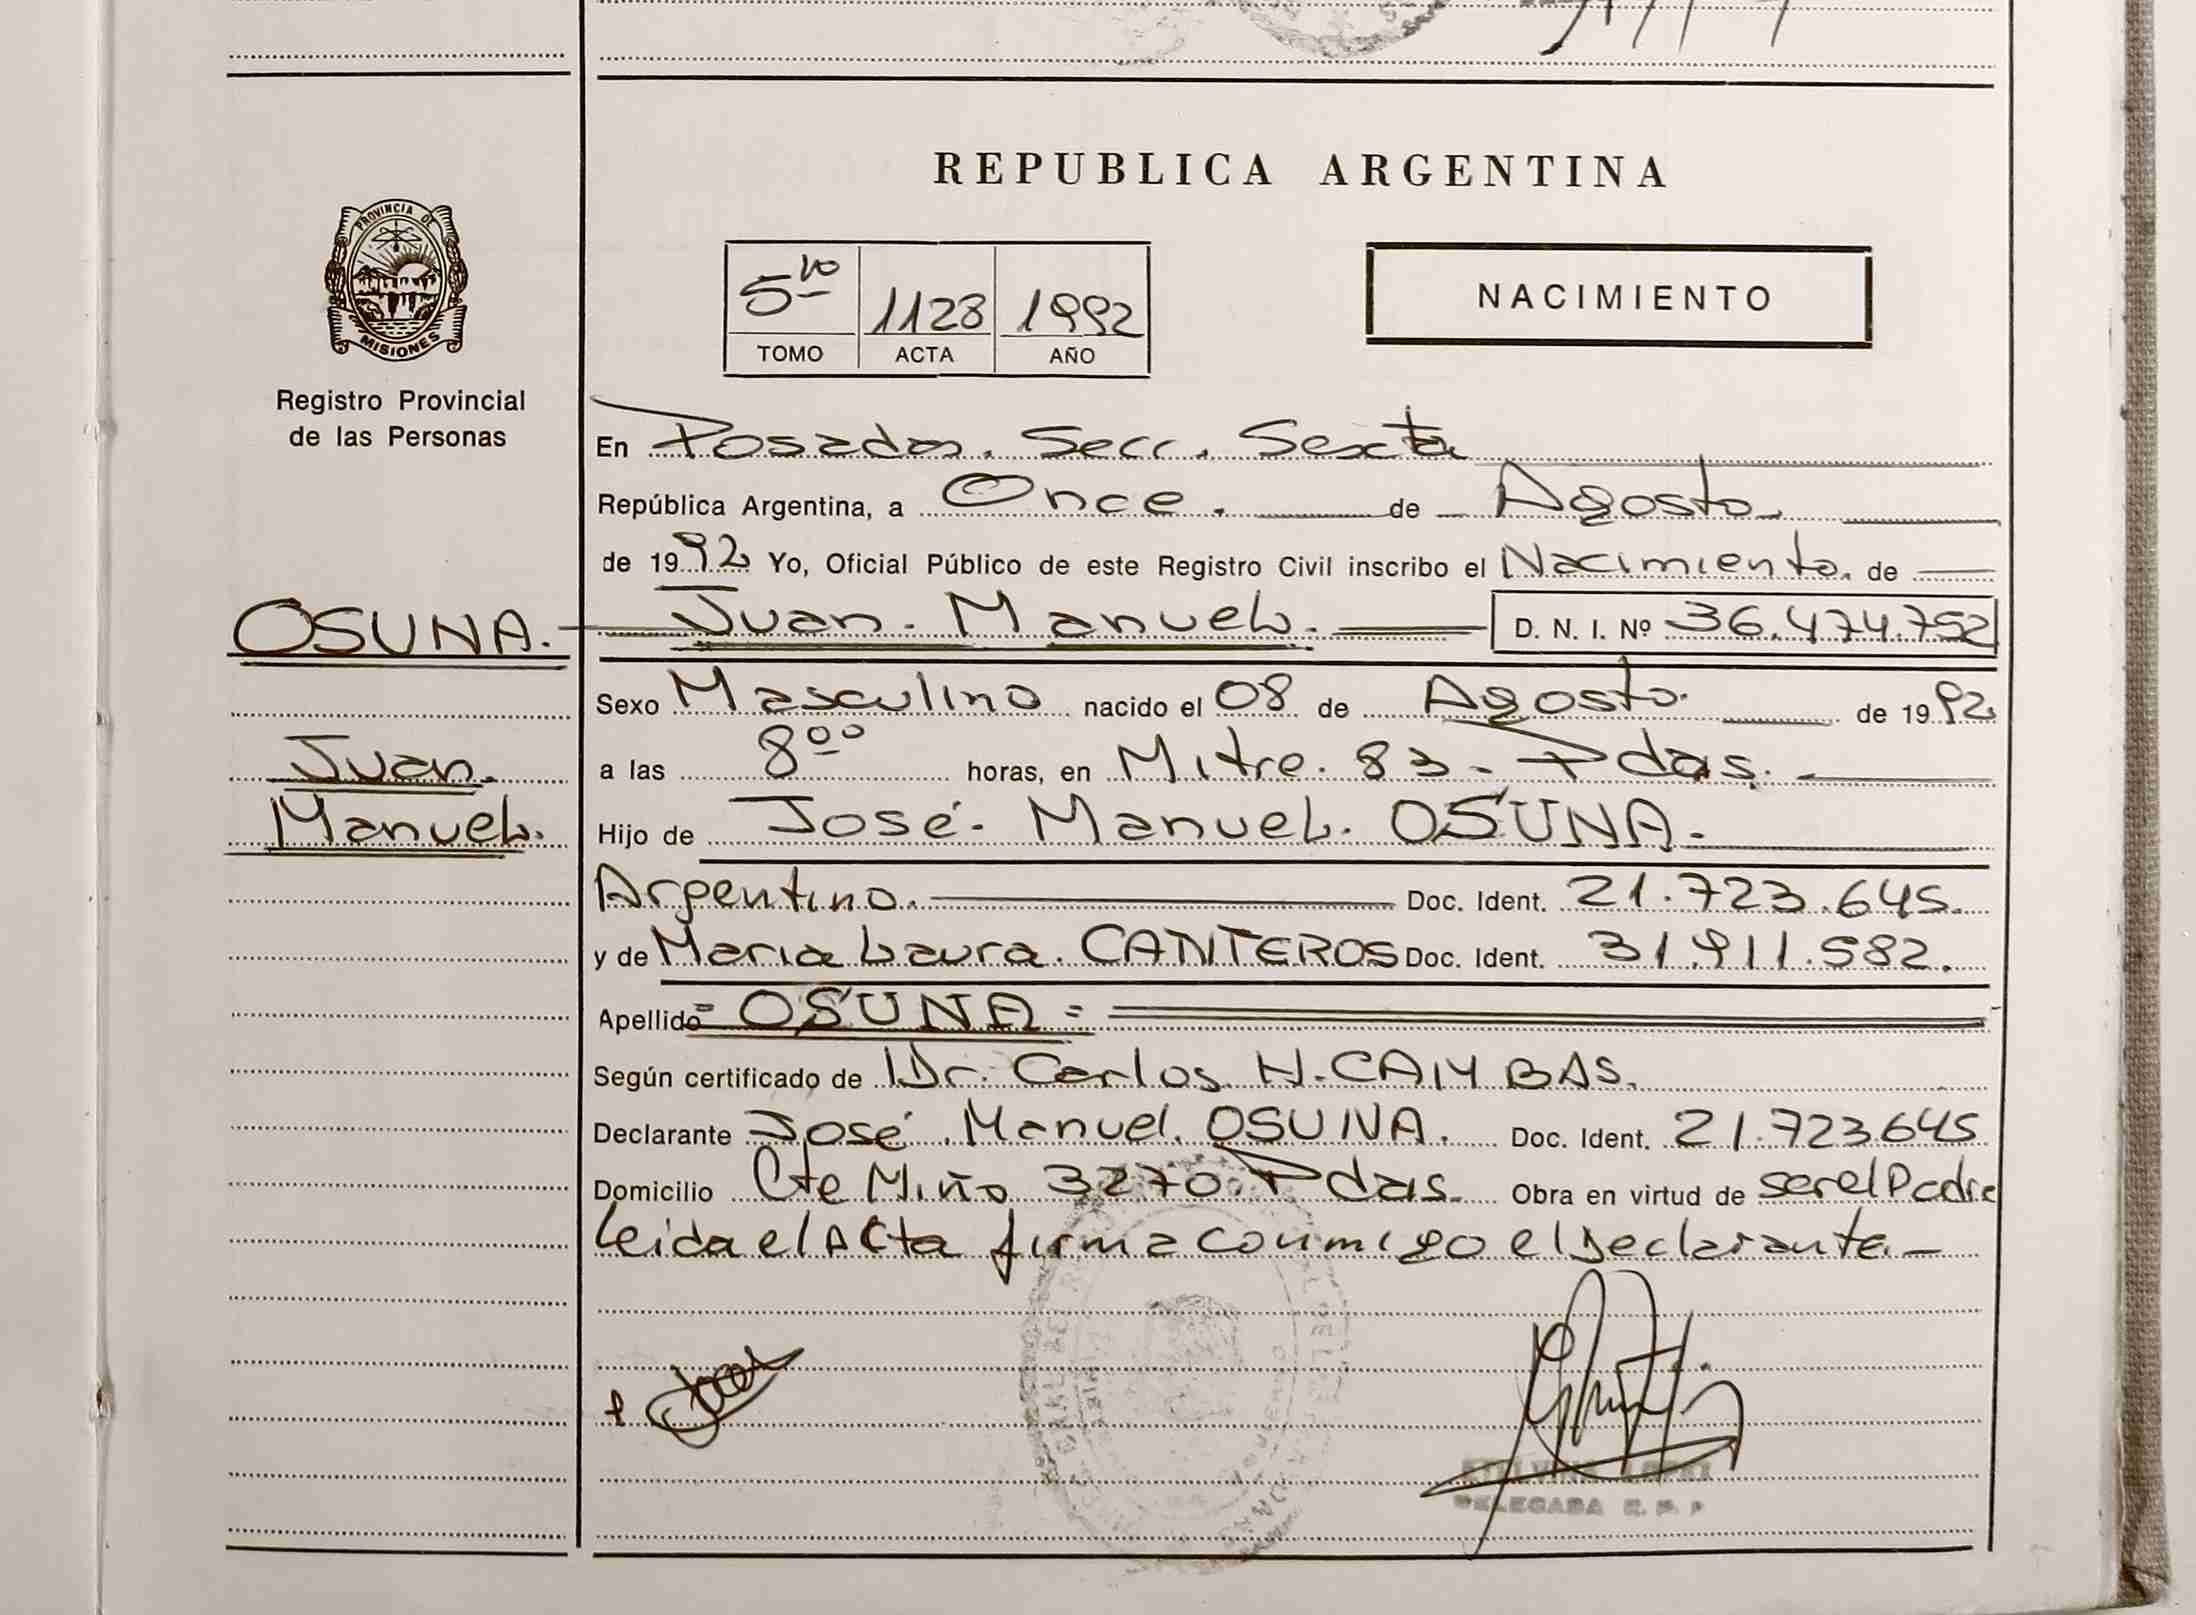 REPUBLICA ARGENTINA
PROVINCIA DE
MISIONES
Registro Provincial
de las Personas
5to 1128 1992
TOMO ACTA AÑO
NACIMIENTO
En Posadas. Secc. Sexta
República Argentina, a Once. de Agosto
de 1992 Yo, Oficial Público de este Registro Civil inscribo el Nacimiento. de
OSUNA. Juan. Manuel. D. N. I. Nº 36.474.752
Sexo Masculino nacido el 08 de Agosto. de 1992
Juan.
a las 8⁰⁰ horas, en Mitre. 83 - Pdas.
Manuel.
Hijo de José. Manuel. OSUNA.
Argentino. Doc. Ident. 21.723.645.
y de Maria Laura. CANTEROS Doc. Ident. 31.911.582.
Apellido = OSUNA =
Según certificado de Dr. Carlos H. 
Declarante José Manuel. OSUNA. Doc. Ident. 21.723645
Domicilio Cte Miño 3270. Pdas. Obra en virtud de ser el Padre
Leida el Acta firma conmigo el Declarante. -
DELEGADA R. P. P